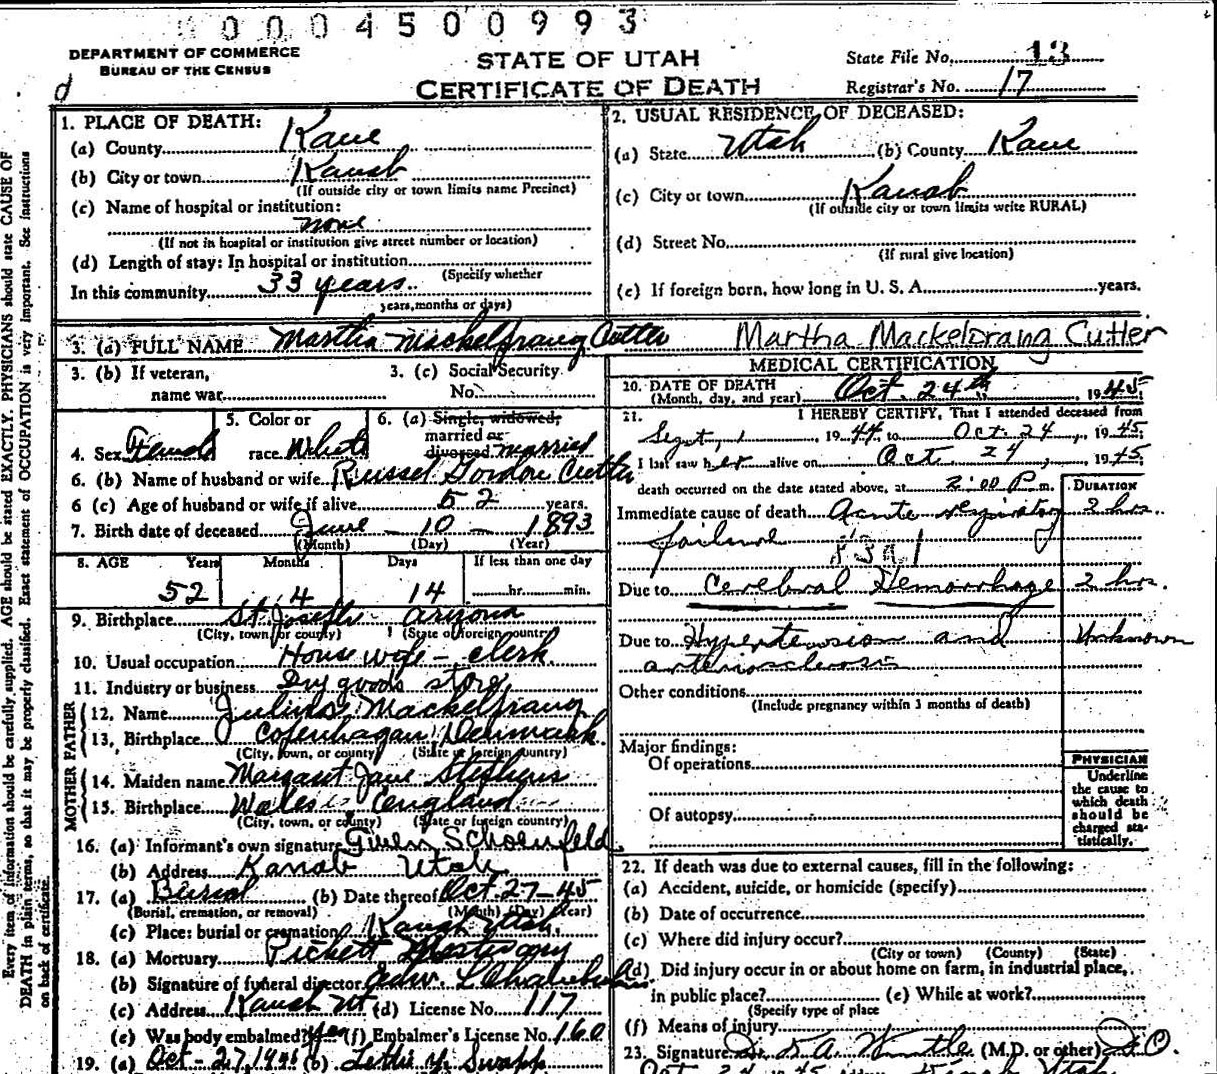 0004500993
DEPARTMENT OF COMMERCE
BUREAU OF THE CENSUS
STATE OF UTAH
CERTIFICATE OF DEATH
State File No. 13
Registrar's No. 17
d
Every item of information should be carefully supplied. AGE should be stated EXACTLY. PHYSICIANS should state CAUSE OF
DEATH in plain terms, so that it may be properly classified. Exact statement of OCCUPATION is very important. See instructions
on back of certificate.
1. PLACE OF DEATH:
(a) County Kane
(b) City or town Kanab
(If outside city or town limits name Precinct)
(c) Name of hospital or institution:
none
(If not in hospital or institution give street number or location)
(d) Length of stay: In hospital or institution
(Specify whether
In this community 33 years
years, months or days)
2. USUAL RESIDENCE OF DECEASED:
(a) State Utah (b) County Kane
(c) City or town Kanab
(If outside city or town limits write RURAL)
(d) Street No.
(If rural give location)
(e) If foreign born, how long in U. S. A. years.
3. (a) FULL NAME Martha Mackelprang Cutler Martha Mackelprang Cutler
3. (b) If veteran,
name war
3. (c) Social Security
No.
4. Sex Female
5. Color or
race White
6. (a) Single, widowed,
married or
divorced married
6. (b) Name of husband or wife Russel Gordon Cutler
6 (c) Age of husband or wife if alive 52 years.
7. Birth date of deceased June - 10 - 1893
(Month) (Day) (Year)
8. AGE Years Months Days If less than one day
52 4 14 hr. min.
9. Birthplace St. Joseph Arizona
(City, town, or county) (State of foreign country)
10. Usual occupation Housewife - clerk
11. Industry or business Dry goods store
FATHER
12. Name Julius Mackelprang
13. Birthplace Copenhagan Denmark
(City, town, or county) (State or foreign country)
MOTHER
14. Maiden name Margaret Jane Stephens
15. Birthplace Wales England
(City, town, or county) (State or foreign country)
16. (a) Informant's own signature Gwen Schoenfeld
(b) Address Kanab Utah
17. (a) Burial (b) Date thereof Oct. 27-45
(Burial, cremation, or removal) (Month) (Day) (Year)
(c) Place: burial or cremation Kanab Utah
18. (a) Mortuary Pickett Mortuary
(b) Signature of funeral director
(c) Address Kanab Ut (d) License No. 117
(e) Was body embalmed? yes (f) Embalmer's License No. 160
19. (a) Oct - 27, (b) Swapp
MEDICAL CERTIFICATION
20. DATE OF DEATH Oct. 24th, 1945
(Month, day, and year)
21. I HEREBY CERTIFY, That I attended deceased from
Sept, 1 1944 to Oct. 24, 1945
I last saw her alive on Oct 24, 1945
death occurred on the date stated above, at 2:00 P.m.
DURATION
Immediate cause of death Acute respiratory 2 hrs.
failure
Due to Cerebral Hemorrhage 2 hr.
Due to Hypertension and Unknown
arteriosclerosis
Other conditions
(Include pregnancy within 3 months of death)
Major findings:
Of operations
Of autopsy
PHYSICIAN
Underline
the cause to
which death
should be
charged sta-
tistically.
22. If death was due to external causes, fill in the following:
(a) Accident, suicide, or homicide (specify)
(b) Date of occurrence
(c) Where did injury occur?
(City or town) (County) (State)
(d) Did injury occur in or about home on farm, in industrial place,
in public place? (e) While at work?
(Specify type of place
(f) Means of injury
23. Signature (M.D. or other) D.O.